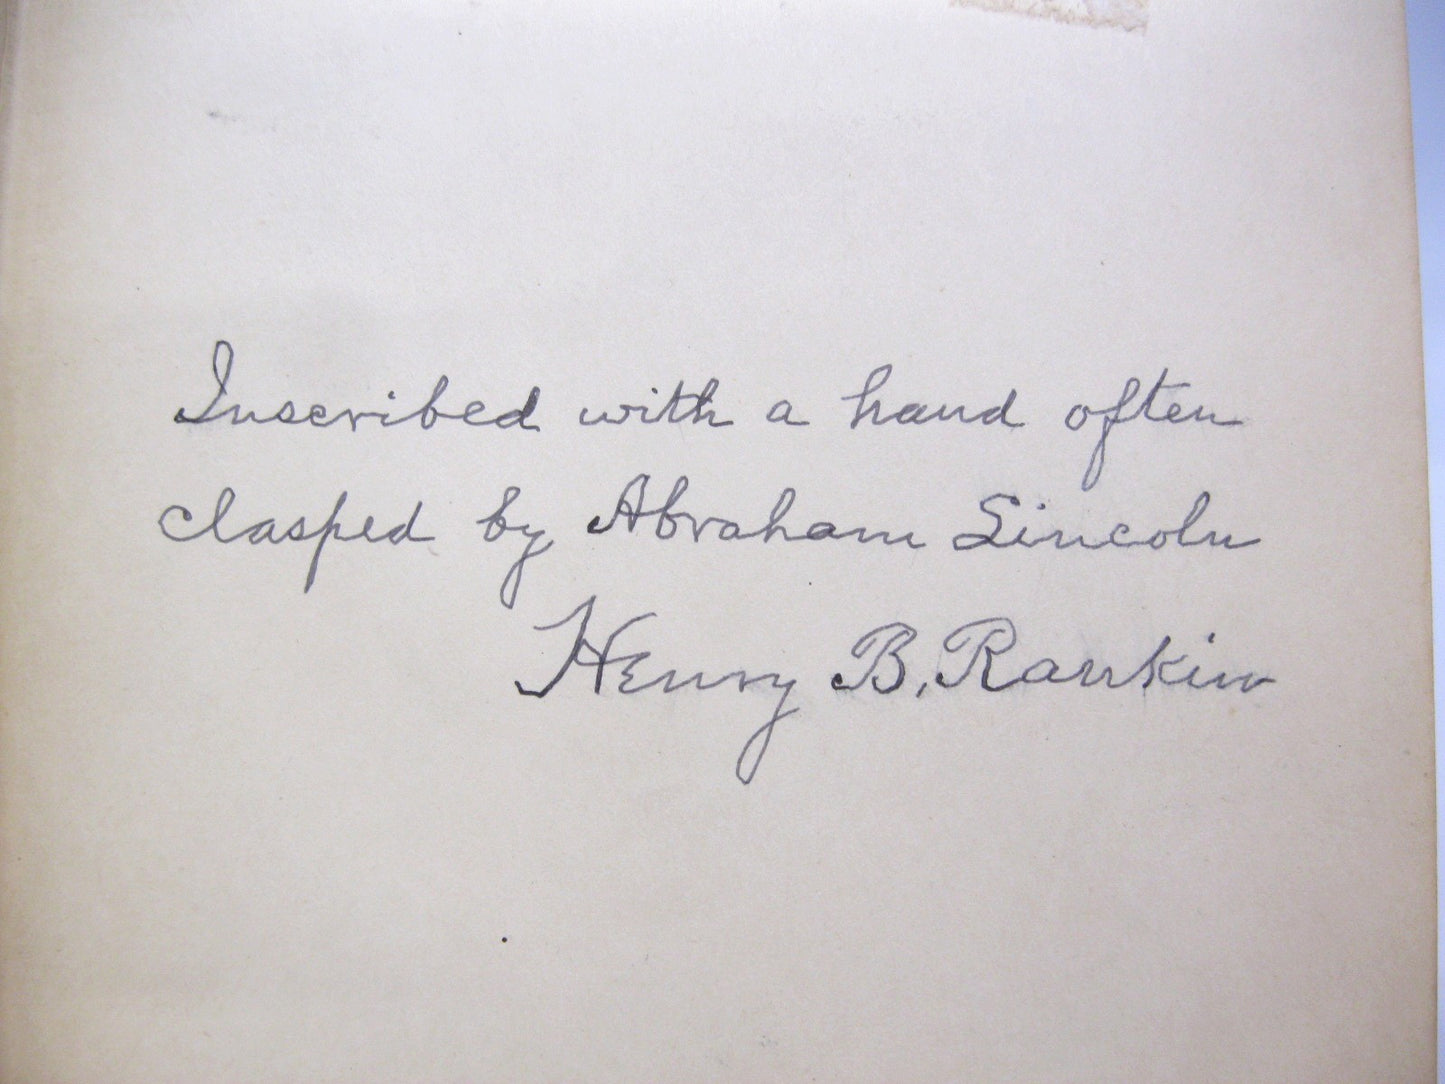 Inscribed with a hand often
clasped by Abraham Lincoln
Henry B. Rankin